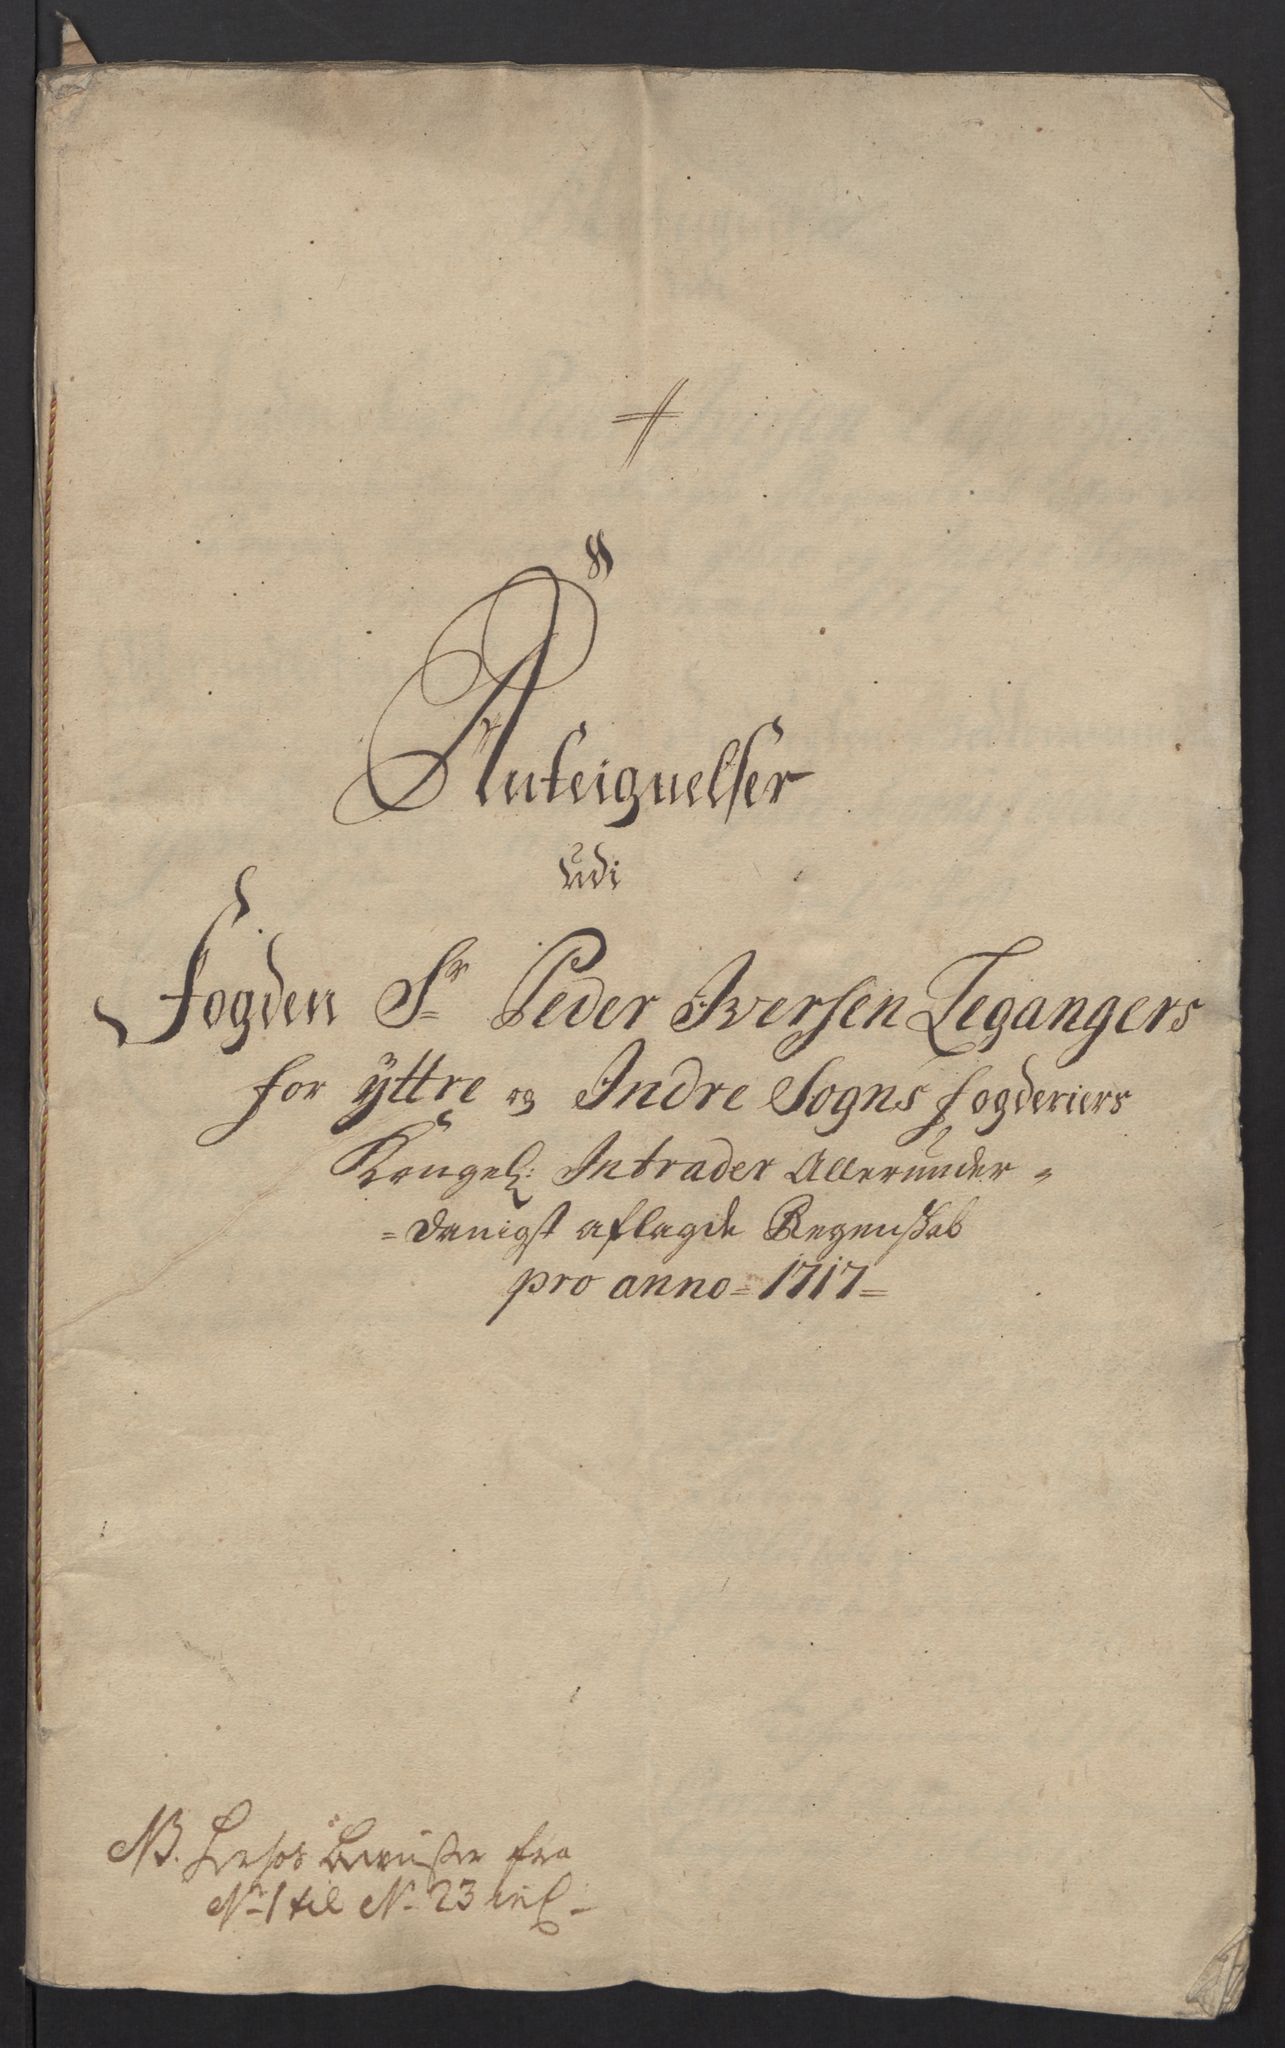 Anteignelser
udi
Fogden Sr Peder Iversen Legangers
for yttre og Indre Sogns fogderiers
Kongel: Intrader Allerunder=
=danigst aflagde Regenskab
pro anno = 1717 =
NB. Herhos beviiser fra
No 1 til No 23 incl